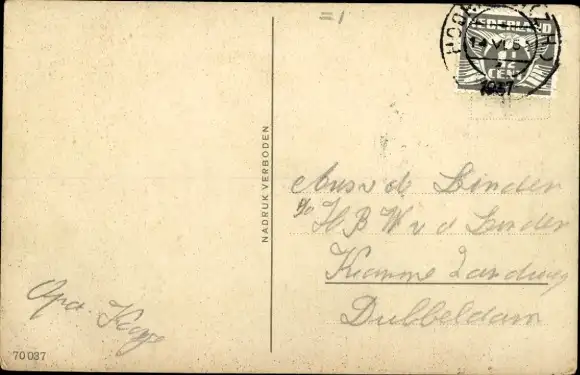 =1
NEDERLAND
CENT
1937
NADRUK VERBODEN
v d Linden
p/a H B W v d Linden
Kromme Zandweg
Dubbeldam
Opa
70037